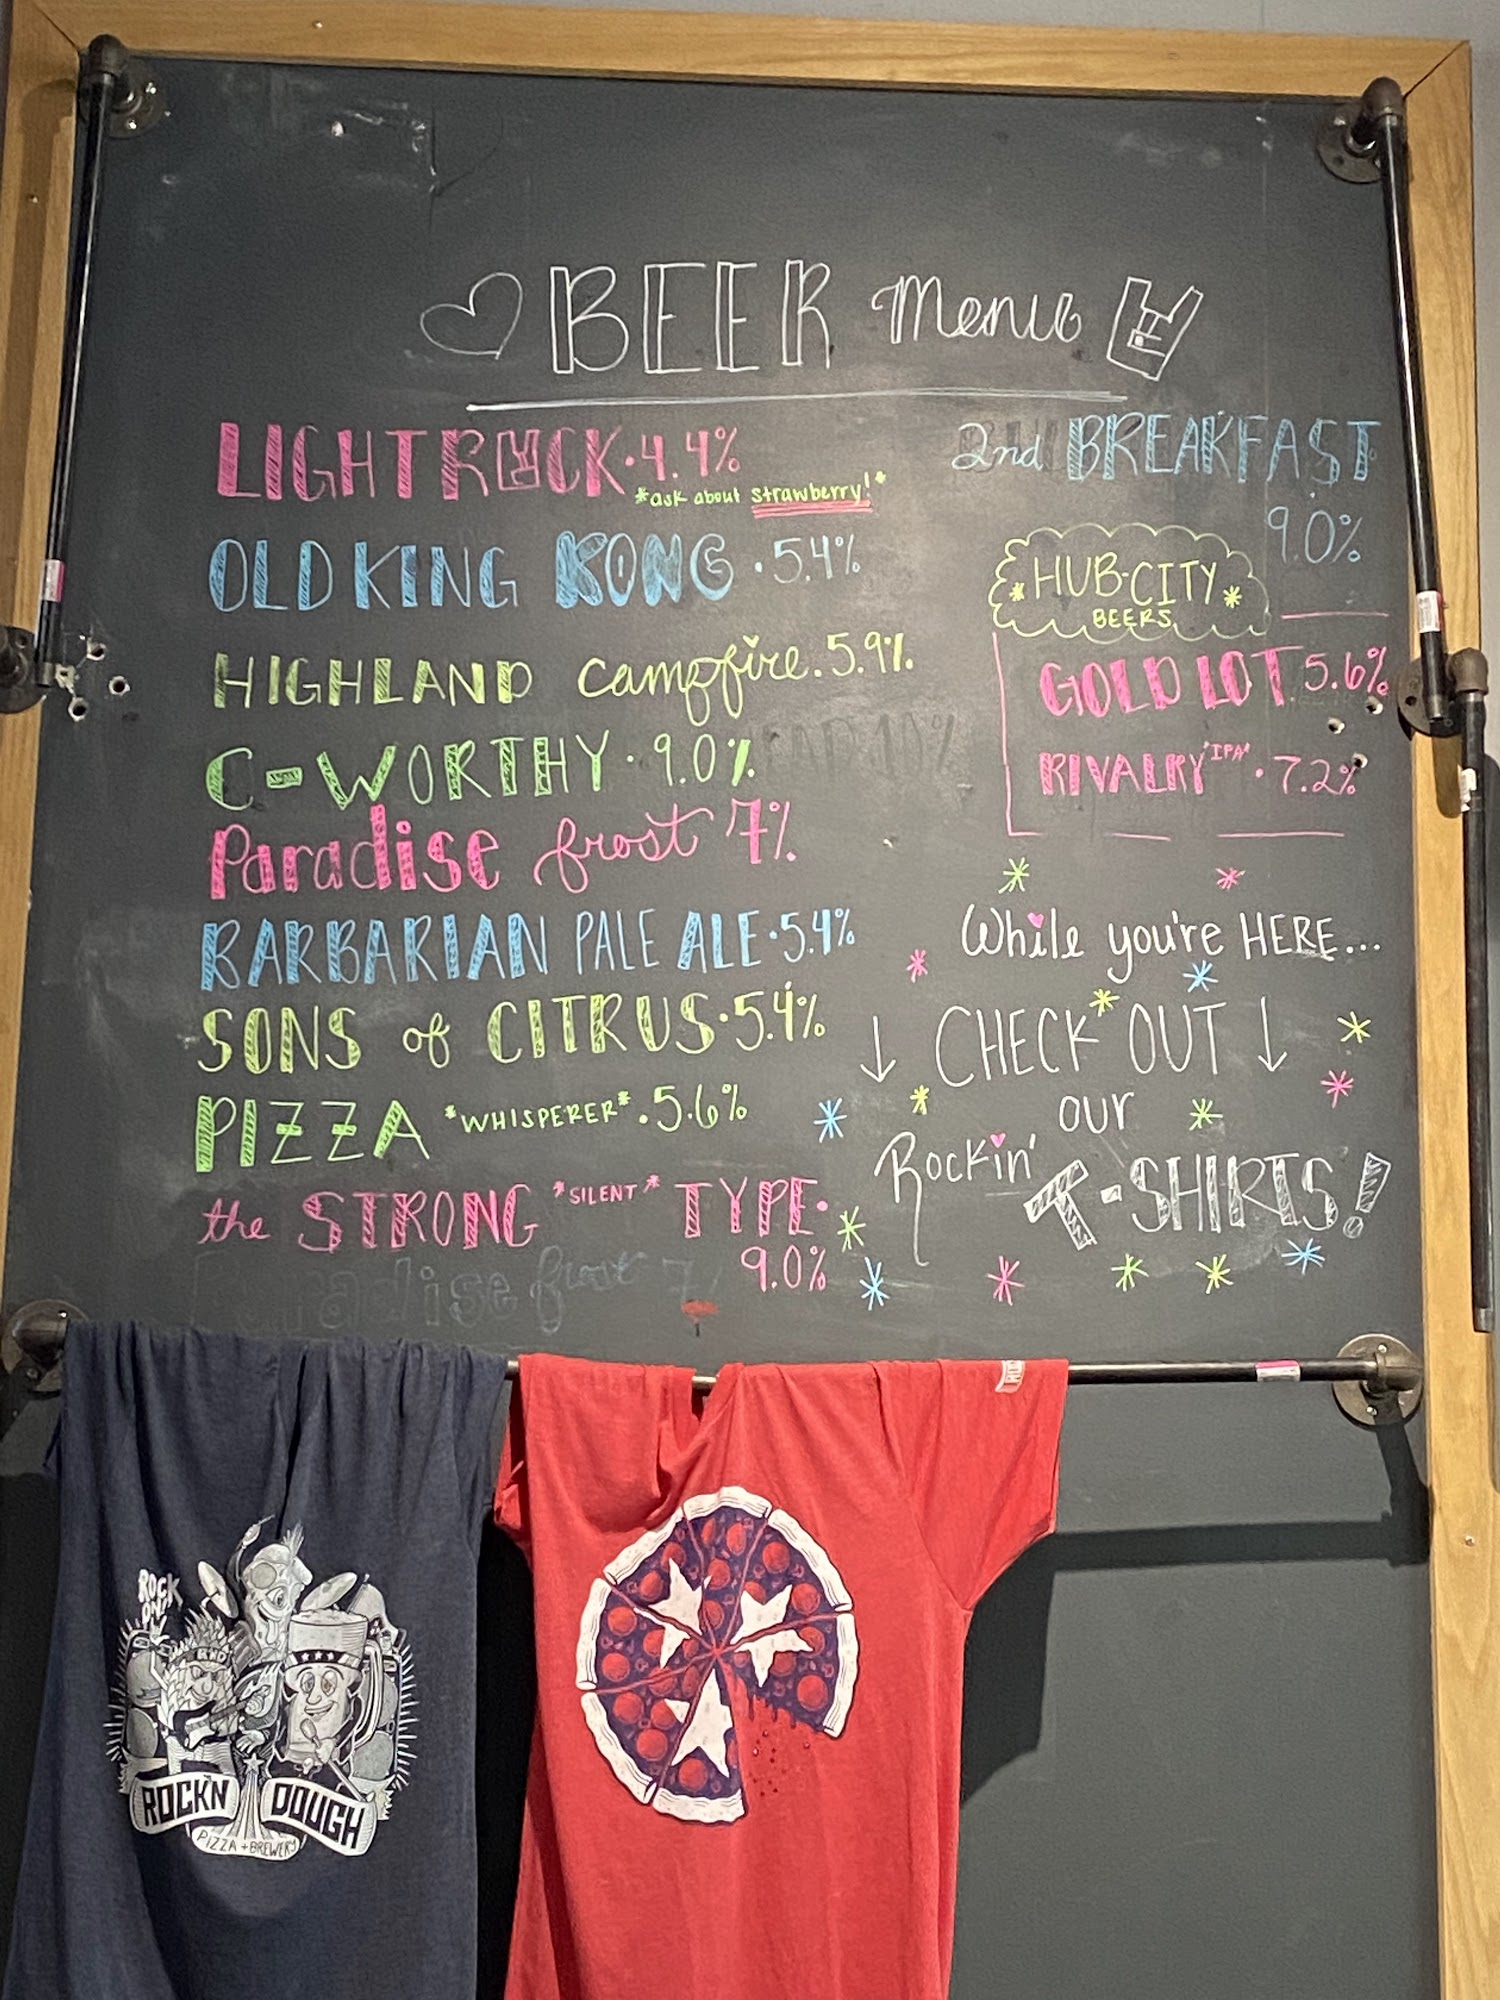 BEER menu
LIGHT ROCK · 4.4%
*ask about strawberry!*
OLD KING KONG · 5.4%
HIGHLAND Campfire · 5.9%
C-WORTHY · 9.0%
Paradise frost 7%
BARBARIAN PALE ALE · 5.4%
SONS of CITRUS · 5.4%
PIZZA *WHISPERER* · 5.6%
the STRONG *SILENT* TYPE ·
9.0%
Paradise frost 7%
2nd BREAKFAST
9.0%
*HUB-CITY*
BEERS
GOLD LOT 5.6%
RIVALRY "IPA" · 7.2%
While you're HERE...
↓ CHECK OUT ↓
our
Rockin'
T-SHIRTS!
ROCK
RND
ROCK'N DOUGH
PIZZA + BREWERY